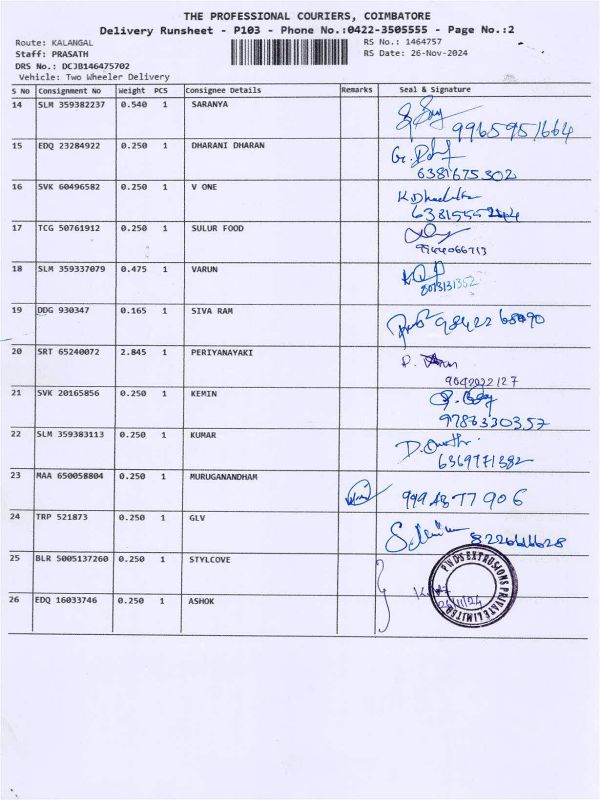 THE PROFESSIONAL COURIERS, COIMBATORE
Delivery Runsheet - P103 - Phone No.:0422-3505555 - Page No.:2
Route: KALANGAL
RS No.: 1464757
Staff: PRASATH
RS Date: 26-Nov-2024
DRS No.: DCJB146475702
Vehicle: Two Wheeler Delivery
S No Consignment No Weight PCS Consignee Details Remarks Seal & Signature
14 SLM 359382237 0.540 1 SARANYA
9965951664
15 EDQ 23284922 0.250 1 DHARANI DHARAN
6381675302
16 SVK 60496582 0.250 1 V ONE
17 TCG 50761912 0.250 1 SULUR FOOD
9944066713
18 SLM 359337079 0.475 1 VARUN
19 DDG 930347 0.165 1 SIVA RAM
20 SRT 65240072 2.845 1 PERIYANAYAKI
21 SVK 20165856 0.250 1 KEMIN
22 SLM 359383113 0.250 1 KUMAR
6369771382
23 MAA 650058804 0.250 1 MURUGANANDHAM
24 TRP 521873 0.250 1 GLV
25 BLR 5005137260 0.250 1 STYLCOVE
26 EDQ 16033746 0.250 1 ASHOK
EXTRUSIONS PRIVATE LIMITED